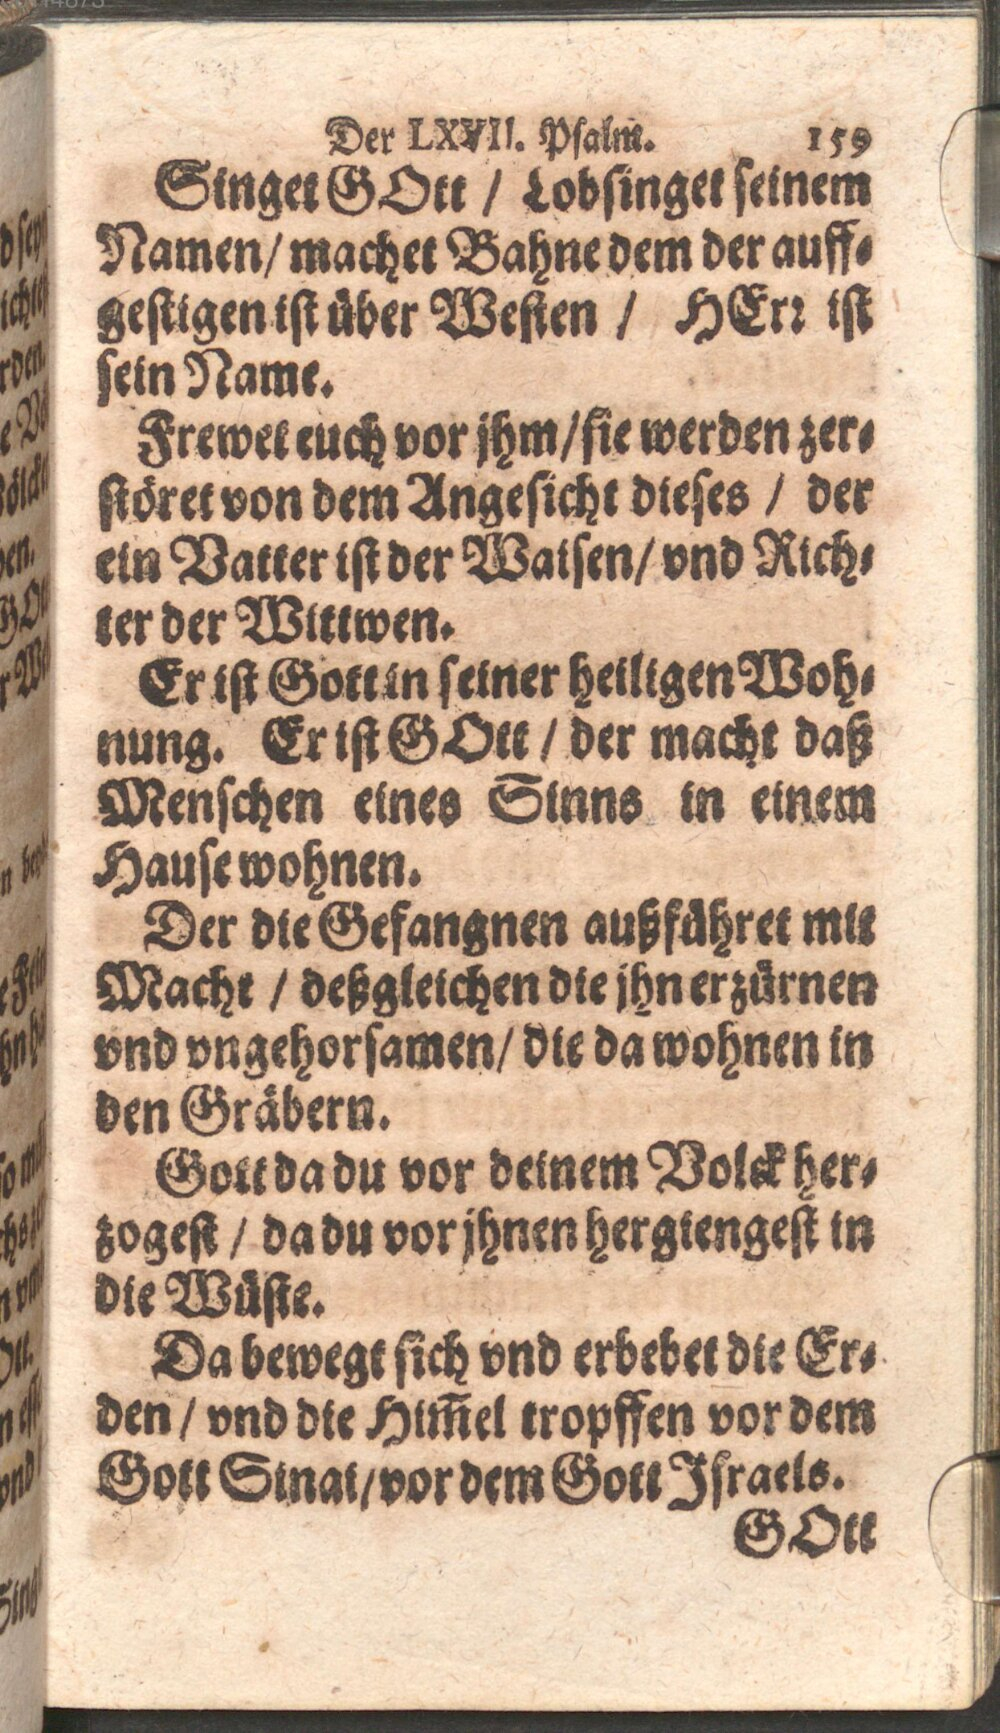 Der LXVII. Psalm. 159
Singet GOtt / Lobsinget seinem
Namen/ machet Bahne dem der auff-
gestigen ist über Westen / HErr ist
sein Name.
Frewet euch vor jhm/sie werden zer-
störet von dem Angesicht dieses / der
ein Vatter ist der Waisen/ vnd Rich-
ter der Wittwen.
Er ist Gott in seiner heiligen Woh-
nung. Er ist GOtt / der macht daß
Menschen eines Sinns in einem
Hause wohnen.
Der die Gefangnen außführet mit
Macht / deßgleichen die jhn erzürnen
vnd vngehorsamen/ die da wohnen in
den Gräbern.
Gott da du vor deinem Volck her-
zogest / da du vor jhnen hergiengest in
die Wüste.
Da bewegt sich vnd erbebet die Er-
den / vnd die Him̃el tropffen vor dem
Gott Sinai/vor dem Gott Jsraels.
GOtt